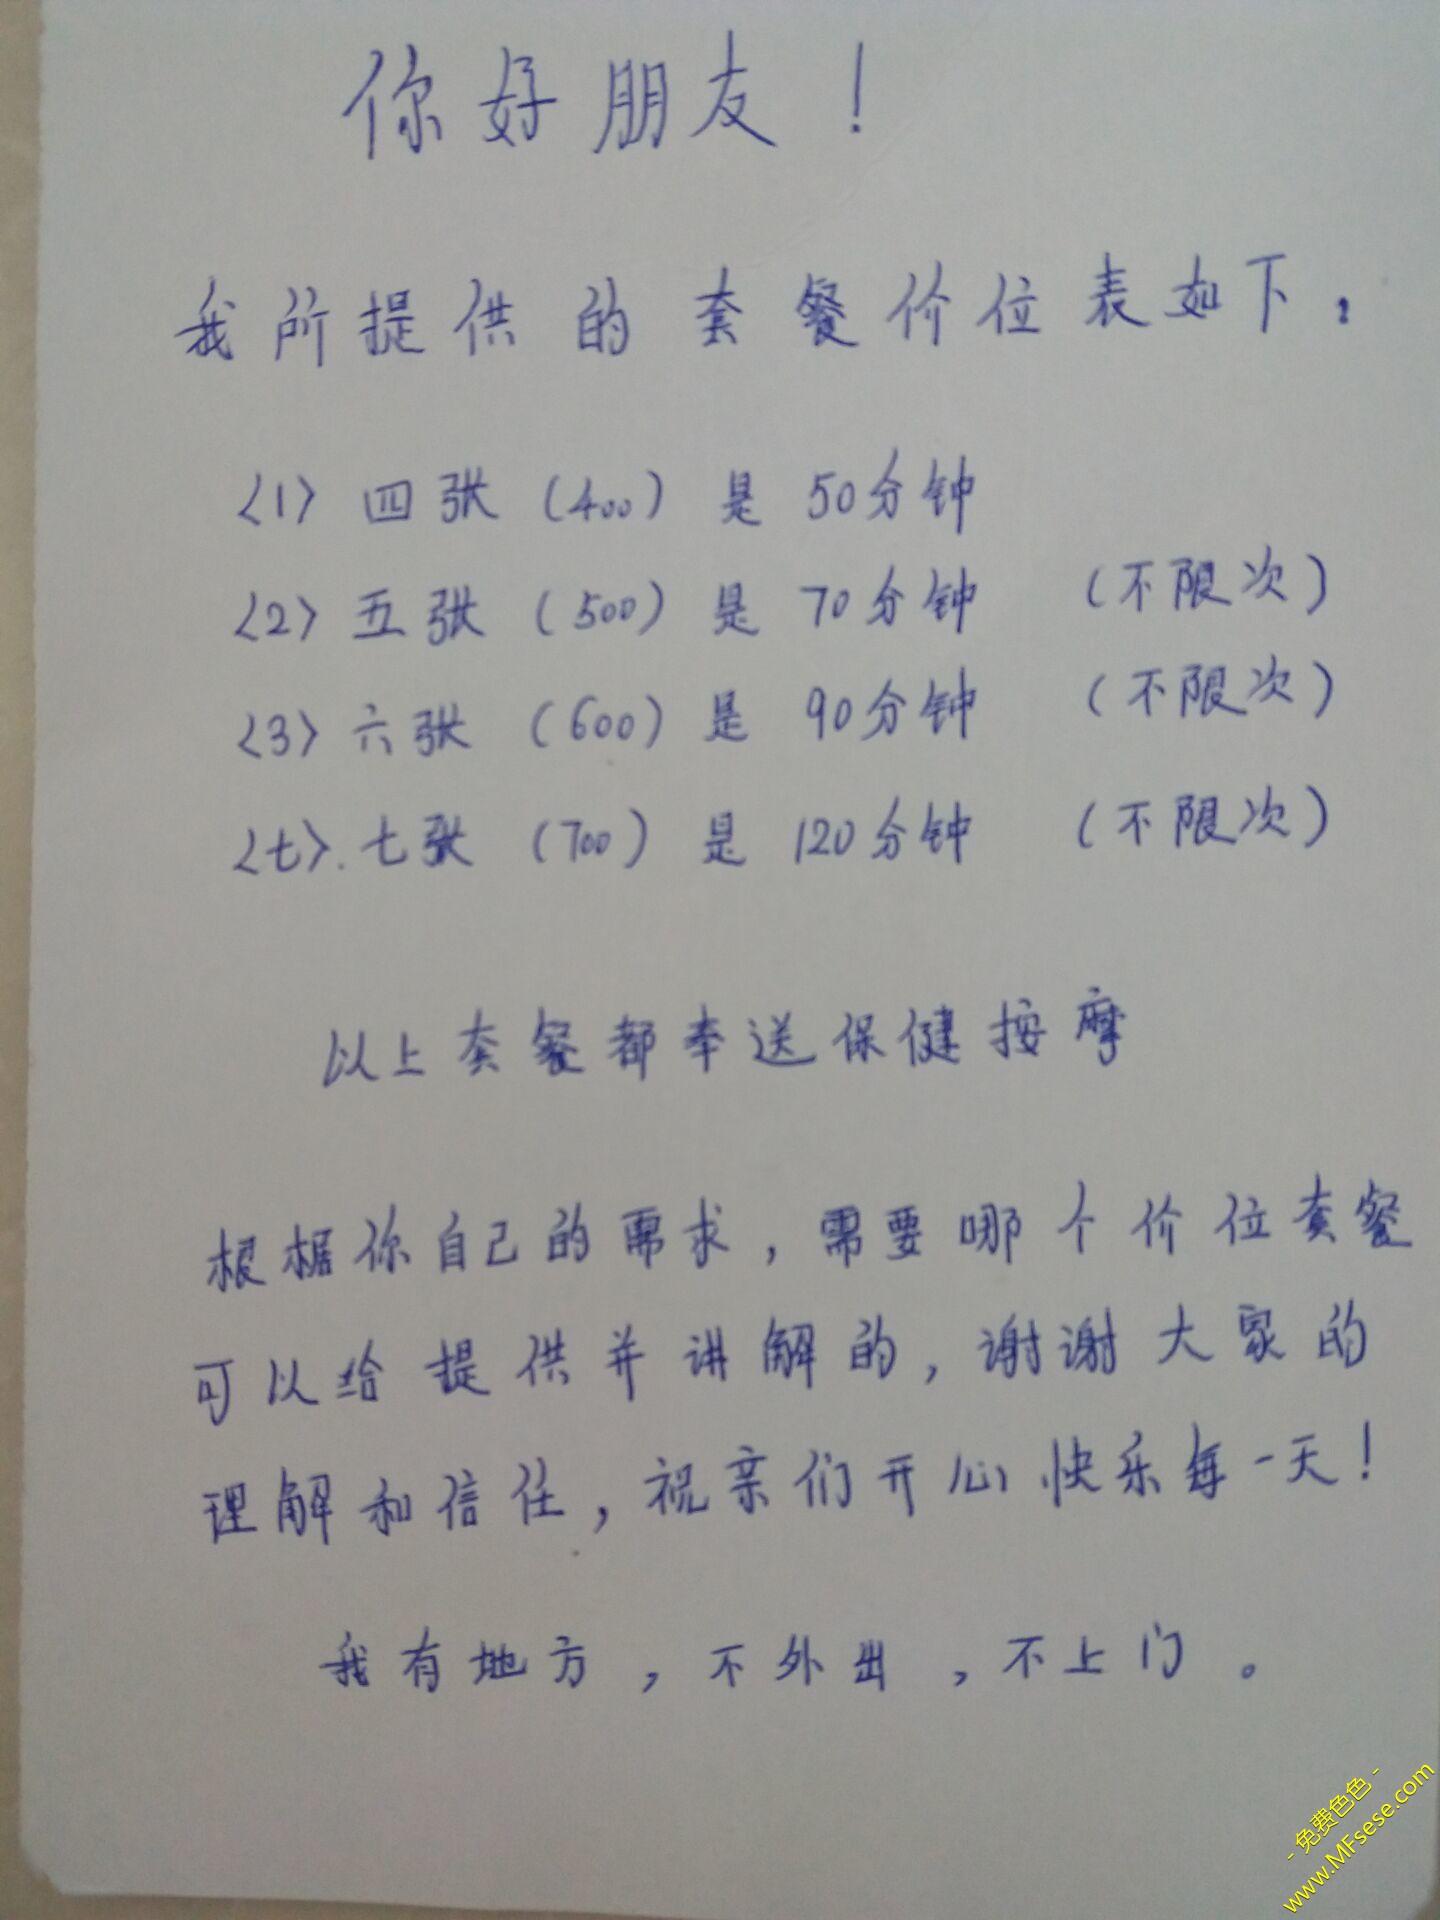 你好朋友！
我所提供的套餐价位表如下：
<1> 四张（400）是 50分钟
<2> 五张（500）是 70分钟 （不限次）
<3> 六张（600）是 90分钟 （不限次）
<七>. 七张（700）是 120分钟 （不限次）
以上套餐都奉送保健按摩
根据你自己的需求，需要哪个价位套餐
可以给提供并讲解的，谢谢大家的
理解和信任，祝亲们开心快乐每一天！
我有地方，不外出，不上门。
- 免费色色 -
www.MFsese.com